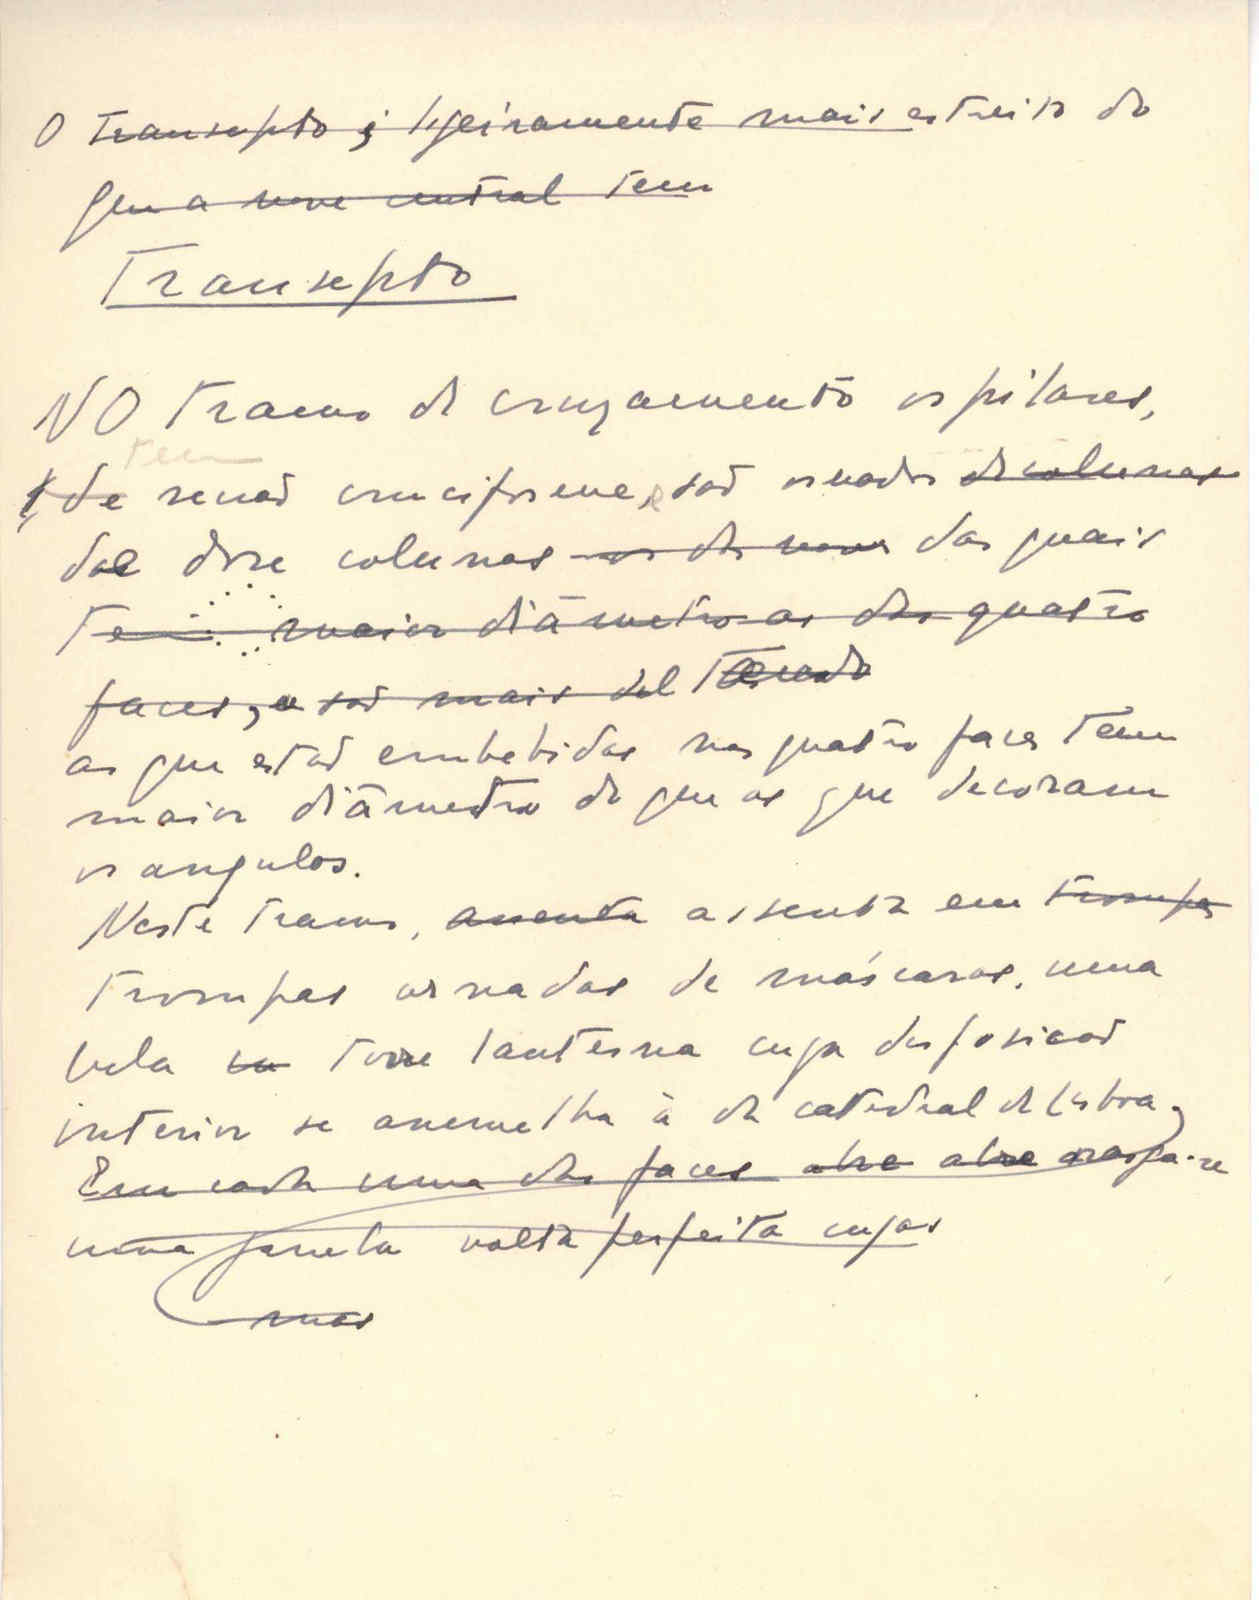 O transepto é ligeiramente mais estreito do
que a nave central tem
Transepto
NO tramo de cruzamento os pilares,
tem
de secção cruciforme, e são ornados de colunas
doze colunas os da nave das quais
Tem maior diâmetro as das quatro
faces, e são mais
as que estão embebidas nas quatro faces tem
maior diâmetro do que as que decoram
os angulos.
Neste tramo, assenta assenta em trompas
trompas ornadas de máscaras, uma
bela torre lanterna cuja disposição
interior se assemelha à da catedral de Lisboa,
Em cada uma das faces abre abre rasga-se
uma janela volta perfeita cujas
mas